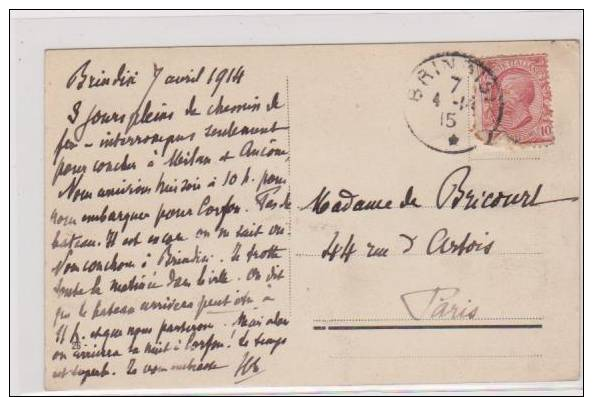 Brindisi 7 avril 1914
3 jours pleins de chemin de
fer - interrompus seulement
pour coucher à Milan et Ancône,
Nous arrivions hier soir à 10 h. pour
nous embarquer pour Corfou. Pas de
bateau. Il est on ne sait où.
Nous couchons à Brindisi. Je trotte
toute la matinée dans la ville. On dit
que le bateau arrivera peut être à
11 h. et que nous partirons. Mais alors
on arrivera la nuit à Corfou! Le temps
est superbe. Je vous embrasse
26
BRINDISI
7
4-14
15
10
Madame de Bricourt
44 rue d'Artois
Paris